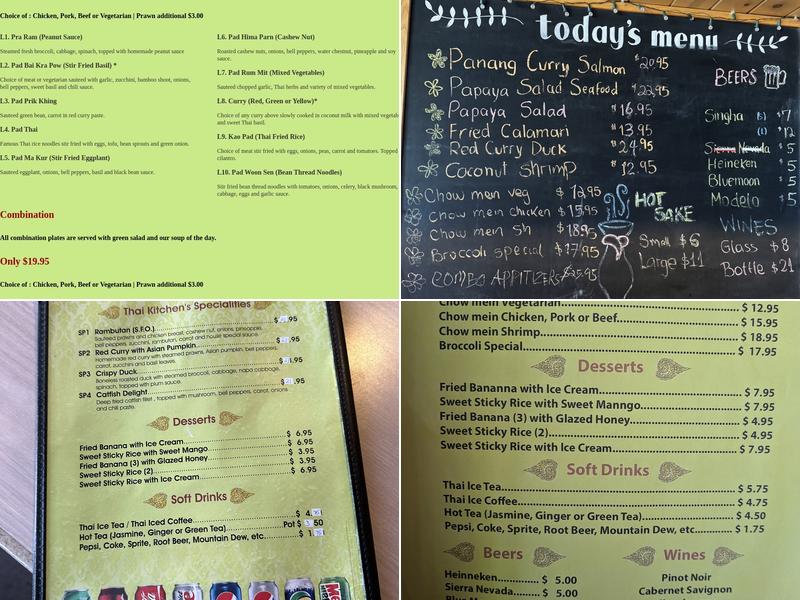 Choice of : Chicken, Pork, Beef or Vegetarian | Prawn additional $3.00
L1. Pra Ram (Peanut Sauce)
Steamed fresh broccoli, cabbage, spinach, topped with homemade peanut sauce
L2. Pad Bai Kra Pow (Stir Fried Basil) *
Choice of meat or vegetarian sauteed with garlic, zucchini, bamboo shoot, onions,
bell peppers, sweet basil and chili sauce.
L3. Pad Prik Khing
Sauteed green bean, carrot in red curry paste.
L4. Pad Thai
Famous Thai rice noodles stir fried with eggs, tofu, bean sprouts and green onion.
L5. Pad Ma Kur (Stir Fried Eggplant)
Sauteed eggplant, onions, bell peppers, basil and black bean sauce.
L6. Pad Hima Parn (Cashew Nut)
Roasted cashew nuts, onions, bell peppers, water chestnut, pineapple and soy
sauce.
L7. Pad Rum Mit (Mixed Vegetables)
Sauteed chopped garlic, Thai herbs and variety of mixed vegetables.
L8. Curry (Red, Green or Yellow)*
Choice of any curry above slowly cooked in coconut milk with mixed vegetables
and sweet Thai basil.
L9. Kao Pad (Thai Fried Rice)
Choice of meat stir fried with eggs, onions, peas, carrot and tomatoes. Topped
cilantro.
L10. Pad Woon Sen (Bean Thread Noodles)
Stir fried bean thread noodles with tomatoes, onions, celery, black mushroom,
cabbage, eggs and garlic.
Combination
All combination plates are served with green salad and our soup of the day.
Only $19.95
Choice of : Chicken, Pork, Beef or Vegetarian | Prawn additional $3.00
today's menu
Panang Curry Salmon $20.95
Papaya Salad Seafood $22.95
Papaya Salad $16.95
Fried Calamari $13.95
Red Curry Duck $24.95
Coconut Shrimp $12.95
Chow mein veg $12.95
Chow mein chicken $15.95
Chow mein Sh $18.95
Broccoli special $17.95
COMBO APPITIZERS $25.95
BEERS
Singha (s) $7
(L) $12
Sierra Nevada $5
Heineken $5
Bluemoon $5
Modelo $5
HOT
SAKE
Small $6
Large $11
WINES
Glass $8
Bottle $21
Thai Kitchen's Specialities
SP1 Rambutan (S.F.O.) .95
Sauteed prawns and chicken breast, cashew nut, onions, pineapple,
bell peppers, zucchini, rambutan, carrot and house special sauce.
SP2 Red Curry with Asian Pumpkin .95
Homemade red curry with steamed prawns, Asian pumpkin, bell peppers,
carrot, zucchini and basil leaves.
SP3 Crispy Duck .95
Boneless roasted duck with steamed broccoli, cabbage, napa cabbage,
spinach, topped with plum sauce.
SP4 Catfish Delight .95
Deep fried catfish filet , topped with mushroom, bell peppers, carrot, onions
and chili paste.
Desserts
Fried Banana with Ice Cream $ 6.95
Sweet Sticky Rice with Sweet Mango $ 6.95
Fried Banana (3) with Glazed Honey $ 3.95
Sweet Sticky Rice (2) $ 3.95
Sweet Sticky Rice with Ice Cream $ 6.95
Soft Drinks
Thai Ice Tea / Thai Iced Coffee $ 4.
Hot Tea (Jasmine, Ginger or Green Tea) Pot $ 50
Pepsi, Coke, Sprite, Root Beer, Mountain Dew, etc $ 1.
Chow mein Vegetarian $ 12.95
Chow mein Chicken, Pork or Beef $ 15.95
Chow mein Shrimp $ 18.95
Broccoli Special $ 17.95
Desserts
Fried Bananna with Ice Cream $ 7.95
Sweet Sticky Rice with Sweet Manngo $ 7.95
Fried Banana (3) with Glazed Honey $ 4.95
Sweet Sticky Rice (2) $ 4.95
Sweet Sticky Rice with Ice Cream $ 7.95
Soft Drinks
Thai Ice Tea $ 5.75
Thai Ice Coffee $ 4.75
Hot Tea (Jasmine, Ginger or Green Tea) $ 4.50
Pepsi, Coke, Sprite, Root Beer, Mountain Dew, etc $ 1.75
Beers
Heinneken $ 5.00
Sierra Nevada $ 5.00
Wines
Pinot Noir
Cabernet Sauvignon